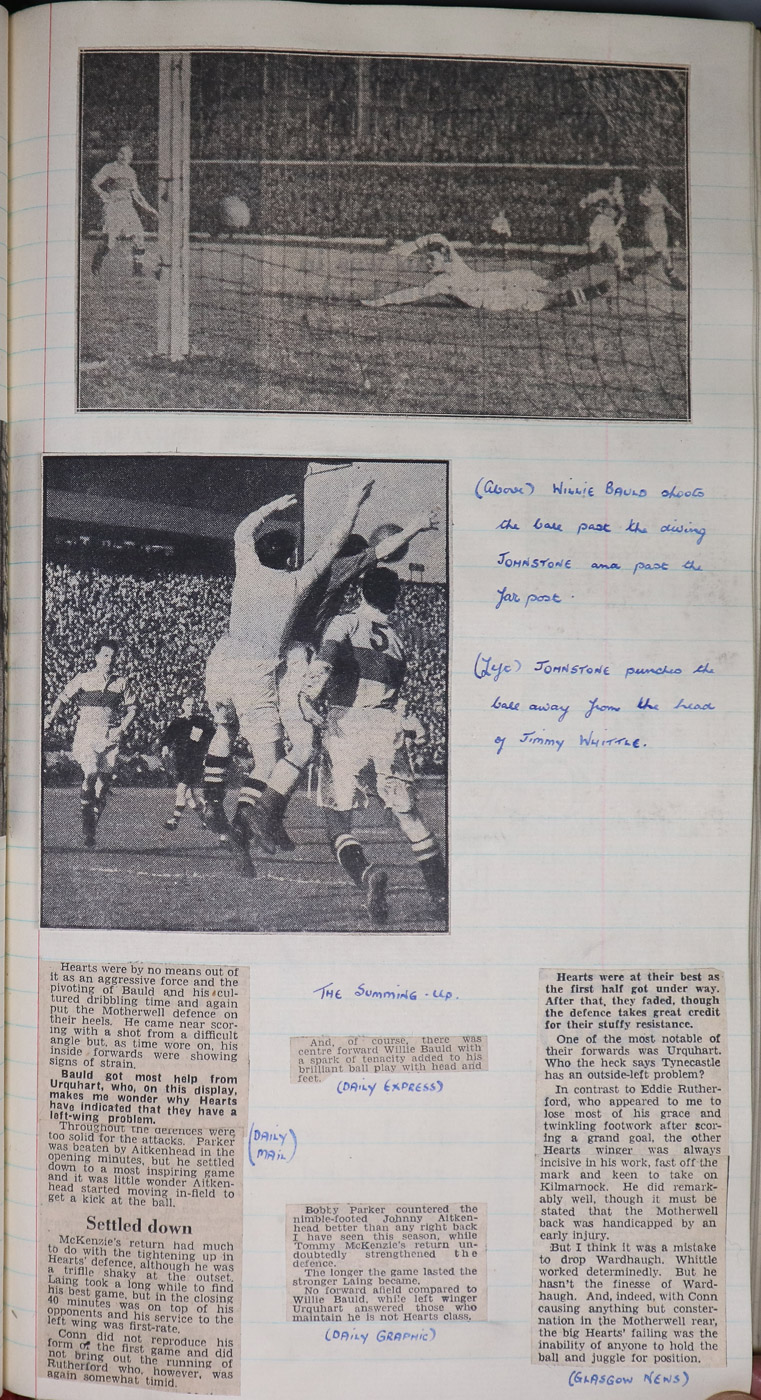 5
(Above) WILLIE BAULD shoots
the ball past the diving
JOHNSTONE and past the
far post.
(Left) JOHNSTONE punches the
ball away from the head
of Jimmy WHITTLE.
Hearts were by no means out of
it as an aggressive force and the
pivoting of Bauld and his cul-
tured dribbling time and again
put the Motherwell defence on
their heels. He came near scor-
ing with a shot from a difficult
angle but, as time wore on, his
inside forwards were showing
signs of strain.
Bauld got most help from
Urquhart, who, on this display,
makes me wonder why Hearts
have indicated that they have a
left-wing problem.
Throughout the defences were
too solid for the attacks. Parker
was beaten by Aitkenhead in the
opening minutes, but he settled
down to a most inspiring game
and it was little wonder Aitken-
head started moving in-field to
get a kick at the ball.
Settled down
McKenzie's return had much
to do with the tightening up in
Hearts' defence, although he was
a trifle shaky at the outset.
Laing took a long while to find
his best game, but in the closing
40 minutes was on top of his
opponents and his service to the
left wing was first-rate.
Conn did not reproduce his
form of the first game and did
not bring out the running of
Rutherford who, however, was
again somewhat timid.
(DAILY
MAIL)
THE SUMMING-UP.
And, of course, there was
centre forward Willie Bauld with
a spark of tenacity added to his
brilliant ball play with head and
feet.
(DAILY EXPRESS)
Bobby Parker countered the
nimble-footed Johnny Aitken-
head better than any right back
I have seen this season, while
Tommy McKenzie's return un-
doubtedly strengthened the
defence.
The longer the game lasted the
stronger Laing became.
No forward afield compared to
Willie Bauld, while left winger
Urquhart answered those who
maintain he is not Hearts class.
(DAILY GRAPHIC)
Hearts were at their best as
the first half got under way.
After that, they faded, though
the defence takes great credit
for their stuffy resistance.
One of the most notable of
their forwards was Urquhart.
Who the heck says Tynecastle
has an outside-left problem?
In contrast to Eddie Ruther-
ford, who appeared to me to
lose most of his grace and
twinkling footwork after scor-
ing a grand goal, the other
Hearts winger was always
incisive in his work, fast off the
mark and keen to take on
Kilmarnock. He did remark-
ably well, though it must be
stated that the Motherwell
back was handicapped by an
early injury.
But I think it was a mistake
to drop Wardhaugh. Whittle
worked determinedly. But he
hasn't the finesse of Ward-
haugh. And, indeed, with Conn
causing anything but conster-
nation in the Motherwell rear,
the big Hearts' failing was the
inability of anyone to hold the
ball and juggle for position.
(GLASGOW NEWS)